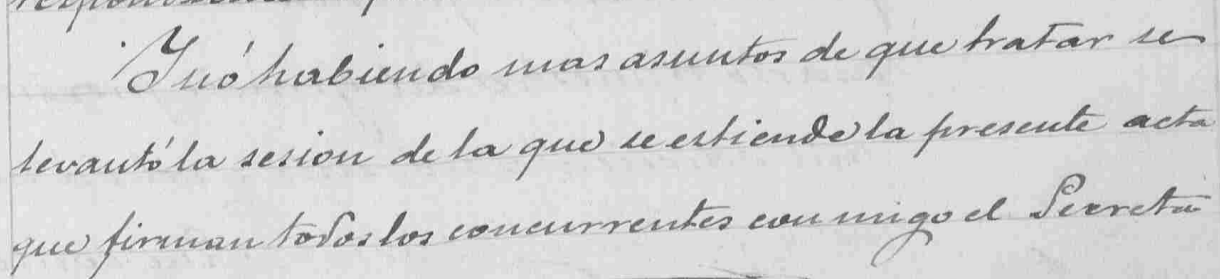 Y nó habiendo mas asuntos de que tratar se
levantó la sesion de la que se estiende la presente acta
que firman todos los concurrentes conmigo el Secreta